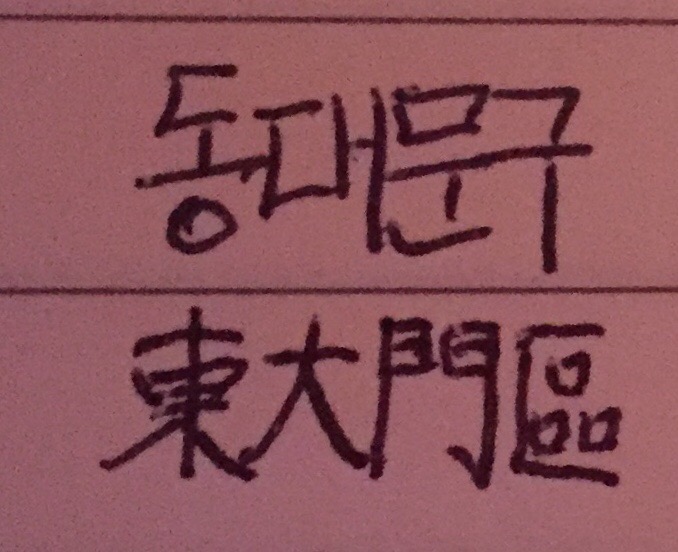 동대문구
東大門區